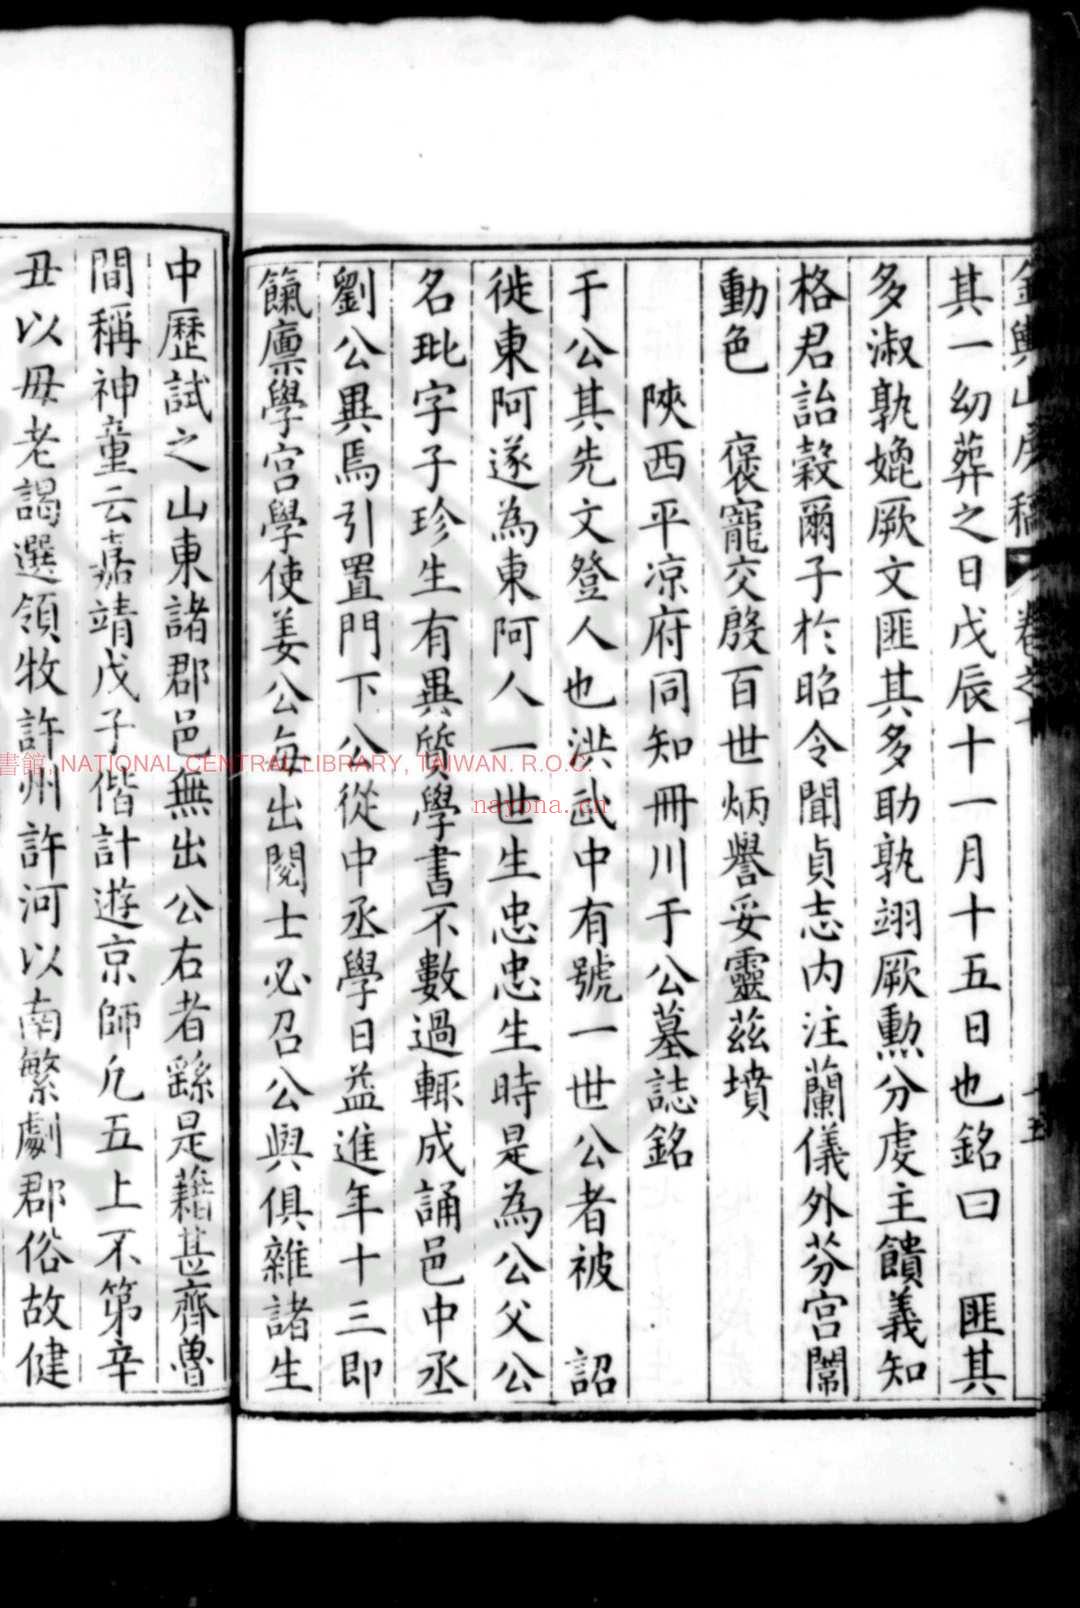 其一幼葬之日戊辰十一月十五日也銘曰　匪其
多淑孰媲厥文匪其多助孰翊厥勲分虔主饋義知
格君詒穀爾子於昭令聞貞志内注蘭儀外芬宫闈
動色　襃寵交殷百世炳譽妥靈茲墳
陝西平凉府同知冊川于公墓誌銘
于公其先文登人也洪武中有號一世公者被　詔
徙東阿遂為東阿人一世生忠忠生時是為公父公
名玭字子珍生有異質學書不數過輒成誦邑中丞
劉公異焉引置門下公從中丞學日益進年十三即
餼廩學宫學使姜公每出閱士必召公與俱雜諸生
中歷試之山東諸郡邑無出公右者繇是藉甚齊魯
間稱神童云嘉靖戊子偕計遊京師凢五上不第辛
丑以母老謁選領牧許州許河以南繁劇郡俗故健
書館, NATIONAL CENTRAL LIBRARY, TAIWAN. R.O.C.
nayona.cn